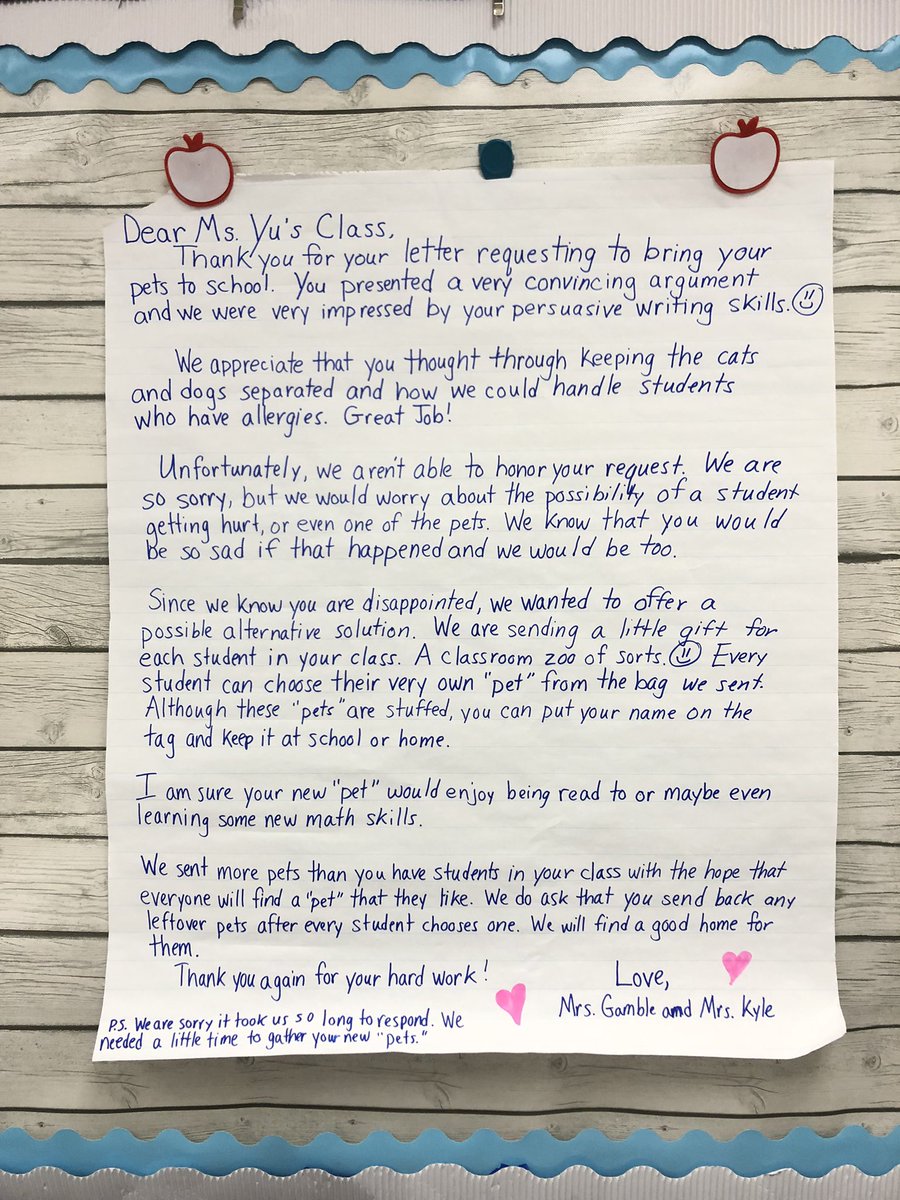 Dear Ms. Yu's Class,
Thank you for your letter requesting to bring your
pets to school. You presented a very convincing argument
and we were very impressed by your persuasive writing skills.
We appreciate that you thought through keeping the cats
and dogs separated and how we could handle students
who have allergies. Great Job!
Unfortunately, we aren't able to honor your request. We are
so sorry, but we would worry about the possibility of a student
getting hurt, or even one of the pets. We know that you would
be so sad if that happened and we would be too.
Since we know you are disappointed, we wanted to offer a
possible alternative solution. We are sending a little gift for
each student in your class. A classroom zoo of sorts. Every
student can choose their very own "pet" from the bag we sent.
Although these "pets" are stuffed, you can put your name on the
tag and keep it at school or home.
I am sure your new "pet" would enjoy being read to or maybe even
learning some new math skills.
We sent more pets than you have students in your class with the hope that
everyone will find a "pet" that they like. We do ask that you send back any
leftover pets after every student chooses one. We will find a good home for
them.
Thank you again for your hard work!
Love,
Mrs. Gamble and Mrs. Kyle
P.S. We are sorry it took us so long to respond. We
needed a little time to gather your new "pets."